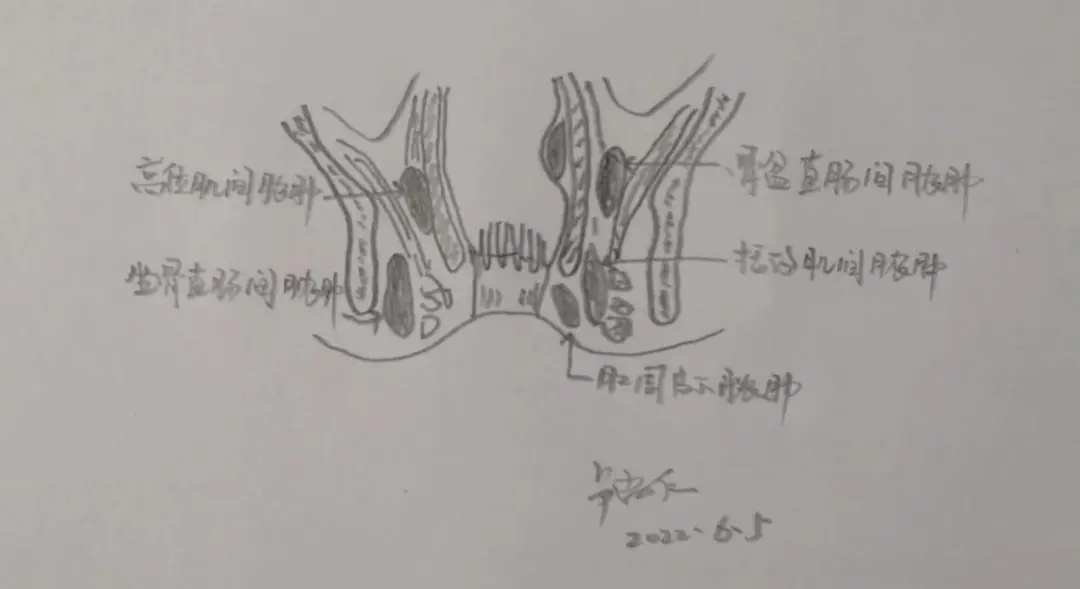 高位肌间脓肿
骨盆直肠间脓肿
坐骨直肠间脓肿
括约肌间脓肿
肛周皮下脓肿
2022.6.5